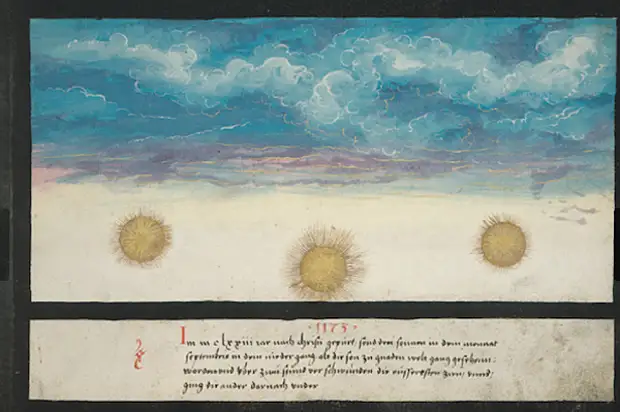 1173
Im m c lxxiii iar nach christi gepurt, send drei sonnen in dem monat
septembris in dem nider gang als die son zu gnaden welt gang gesehenn
worden und uber zwui stund ver schwunden die eussersten zwu, unnd
gung die ander darnach under